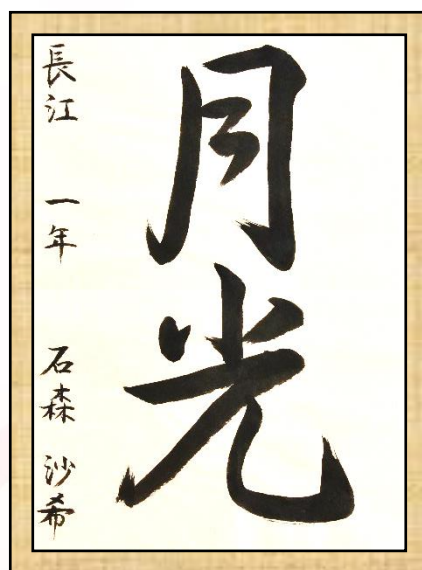 月光
長江 一年 石森 沙希